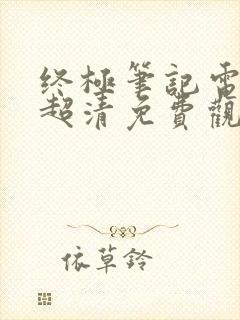 终極筆記電
超清免費觀
依草鈴